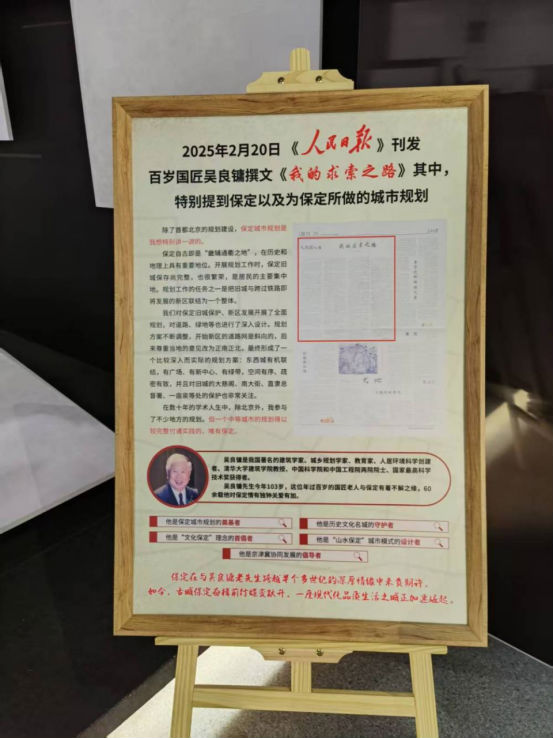 2025年2月20日《人民日报》刊发
百岁国匠吴良镛撰文《我的求索之路》其中，
特别提到保定以及为保定所做的城市规划
除了首都北京的规划建设，保定城市规划是
我想特别讲一讲的。
保定自古即是“畿辅通衢之地”，在历史和
地理上具有重要地位。开展规划工作时，保定旧
城保存尚完整，也很繁荣，是居民的主要集中
地。规划工作的任务之一是把旧城与跨过铁路即
将发展的新区联结为一个整体。
我们对保定旧城保护、新区发展开展了全面
规划，对道路、绿地等也进行了深入设计。规划
方案不断调整，开始新区的道路网是斜向的，后
来尊重当地的意见改为正南正北。最终形成了一
个比较深入而实际的规划方案：东西城有机联
结，有广场、有新中心、有绿带，空间有序、疏
密有致，并且对旧城的大慈阁、南大街、直隶总
督署、一亩泉等处的保护也非常关注。
在数十年的学术人生中，除北京外，我参与
了不少地方的规划。但一个中等城市的规划得以
较完整付诸实践的，唯有保定。
我的求索之路
吴良镛是我国著名的建筑学家、城乡规划学家、教育家，人居环境科学创建
者，清华大学建筑学院教授，中国科学院和中国工程院两院院士，国家最高科学
技术奖获得者。
吴良镛先生今年103岁，这位年过百岁的国匠老人与保定有着不解之缘，60
余载他对保定情有独钟关爱有加。
他是保定城市规划的奠基者
他是历史文化名城的守护者
他是“文化保定”理念的首倡者
他是“山水保定”城市模式的设计者
他是京津冀协同发展的倡导者
保定在与吴良镛老先生跨越半个多世纪的深厚情缘中不负期许，
如今，古城保定奋楫前行蝶变跃升，一座现代化品质生活之城正加速崛起。